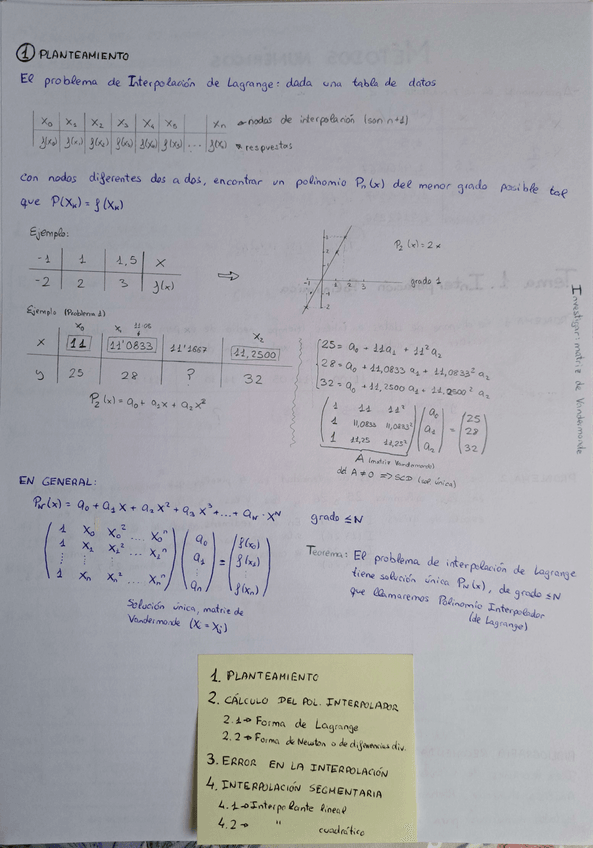 ① PLANTEAMIENTO
El problema de Interpolación de Lagrange: dada una tabla de datos
x₀ x₁ x₂ x₃ x₄ x₅ xₙ → nodos de interpolación (son n+1)
f(x₀) f(x₁) f(x₂) f(x₃) f(x₄) f(x₅) ... f(xₙ) → respuestas
con nodos diferentes dos a dos, encontrar un polinomio Pₙ(x) del menor grado posible tal
que P(xₖ) = f(xₖ)
Ejemplo:
-1 1 1,5 x
-2 2 3 f(x)
⇒
P₂(x) = 2x
grado 1
Investigar: matriz de Vandermonde
Ejemplo (Problema 1)
x₀ x₁ 11:05 x₂
x 11 11'0833 11'1667 11,2500
y 25 28 ? 32
P₂(x) = a₀ + a₁x + a₂x²
25 = a₀ + 11a₁ + 11²a₂
28 = a₀ + 11,0833 a₁ + 11,0833² a₂
32 = a₀ + 11,2500 a₁ + 11,2500² a₂
1 11 11² a₀ 25
1 11,0833 11,0833² a₁ = 28
1 11,25 11,25² a₂ 32
A (matriz Vandermonde)
det A ≠ 0 ⇒ SCD (sol única)
EN GENERAL:
P_N(x) = a₀ + a₁x + a₂x² + a₃x³ + ... + a_N · x^N grado ≤ N
1 x₀ x₀² ... x₀ⁿ a₀ f(x₀)
1 x₁ x₁² ... x₁ⁿ a₁ = f(x₁)
⋮ ⋮ ⋮ ⋮ ⋮ ⋮
1 xₙ xₙ² ... xₙⁿ aₙ f(xₙ)
Solución única, matriz de
Vandermonde (xᵢ = xⱼ)
Teorema: El problema de interpolación de Lagrange
tiene solución única P_N(x), de grado ≤N
que llamaremos Polinomio Interpolador
(de Lagrange)
1. PLANTEAMIENTO
2. CÁLCULO DEL POL. INTERPOLADOR
2.1 → Forma de Lagrange
2.2 → Forma de Newton o de diferencias div.
3. ERROR EN LA INTERPOLACIÓN
4. INTERPOLACIÓN SEGMENTARIA
4.1 → Interpolante lineal
4.2 → " cuadrático